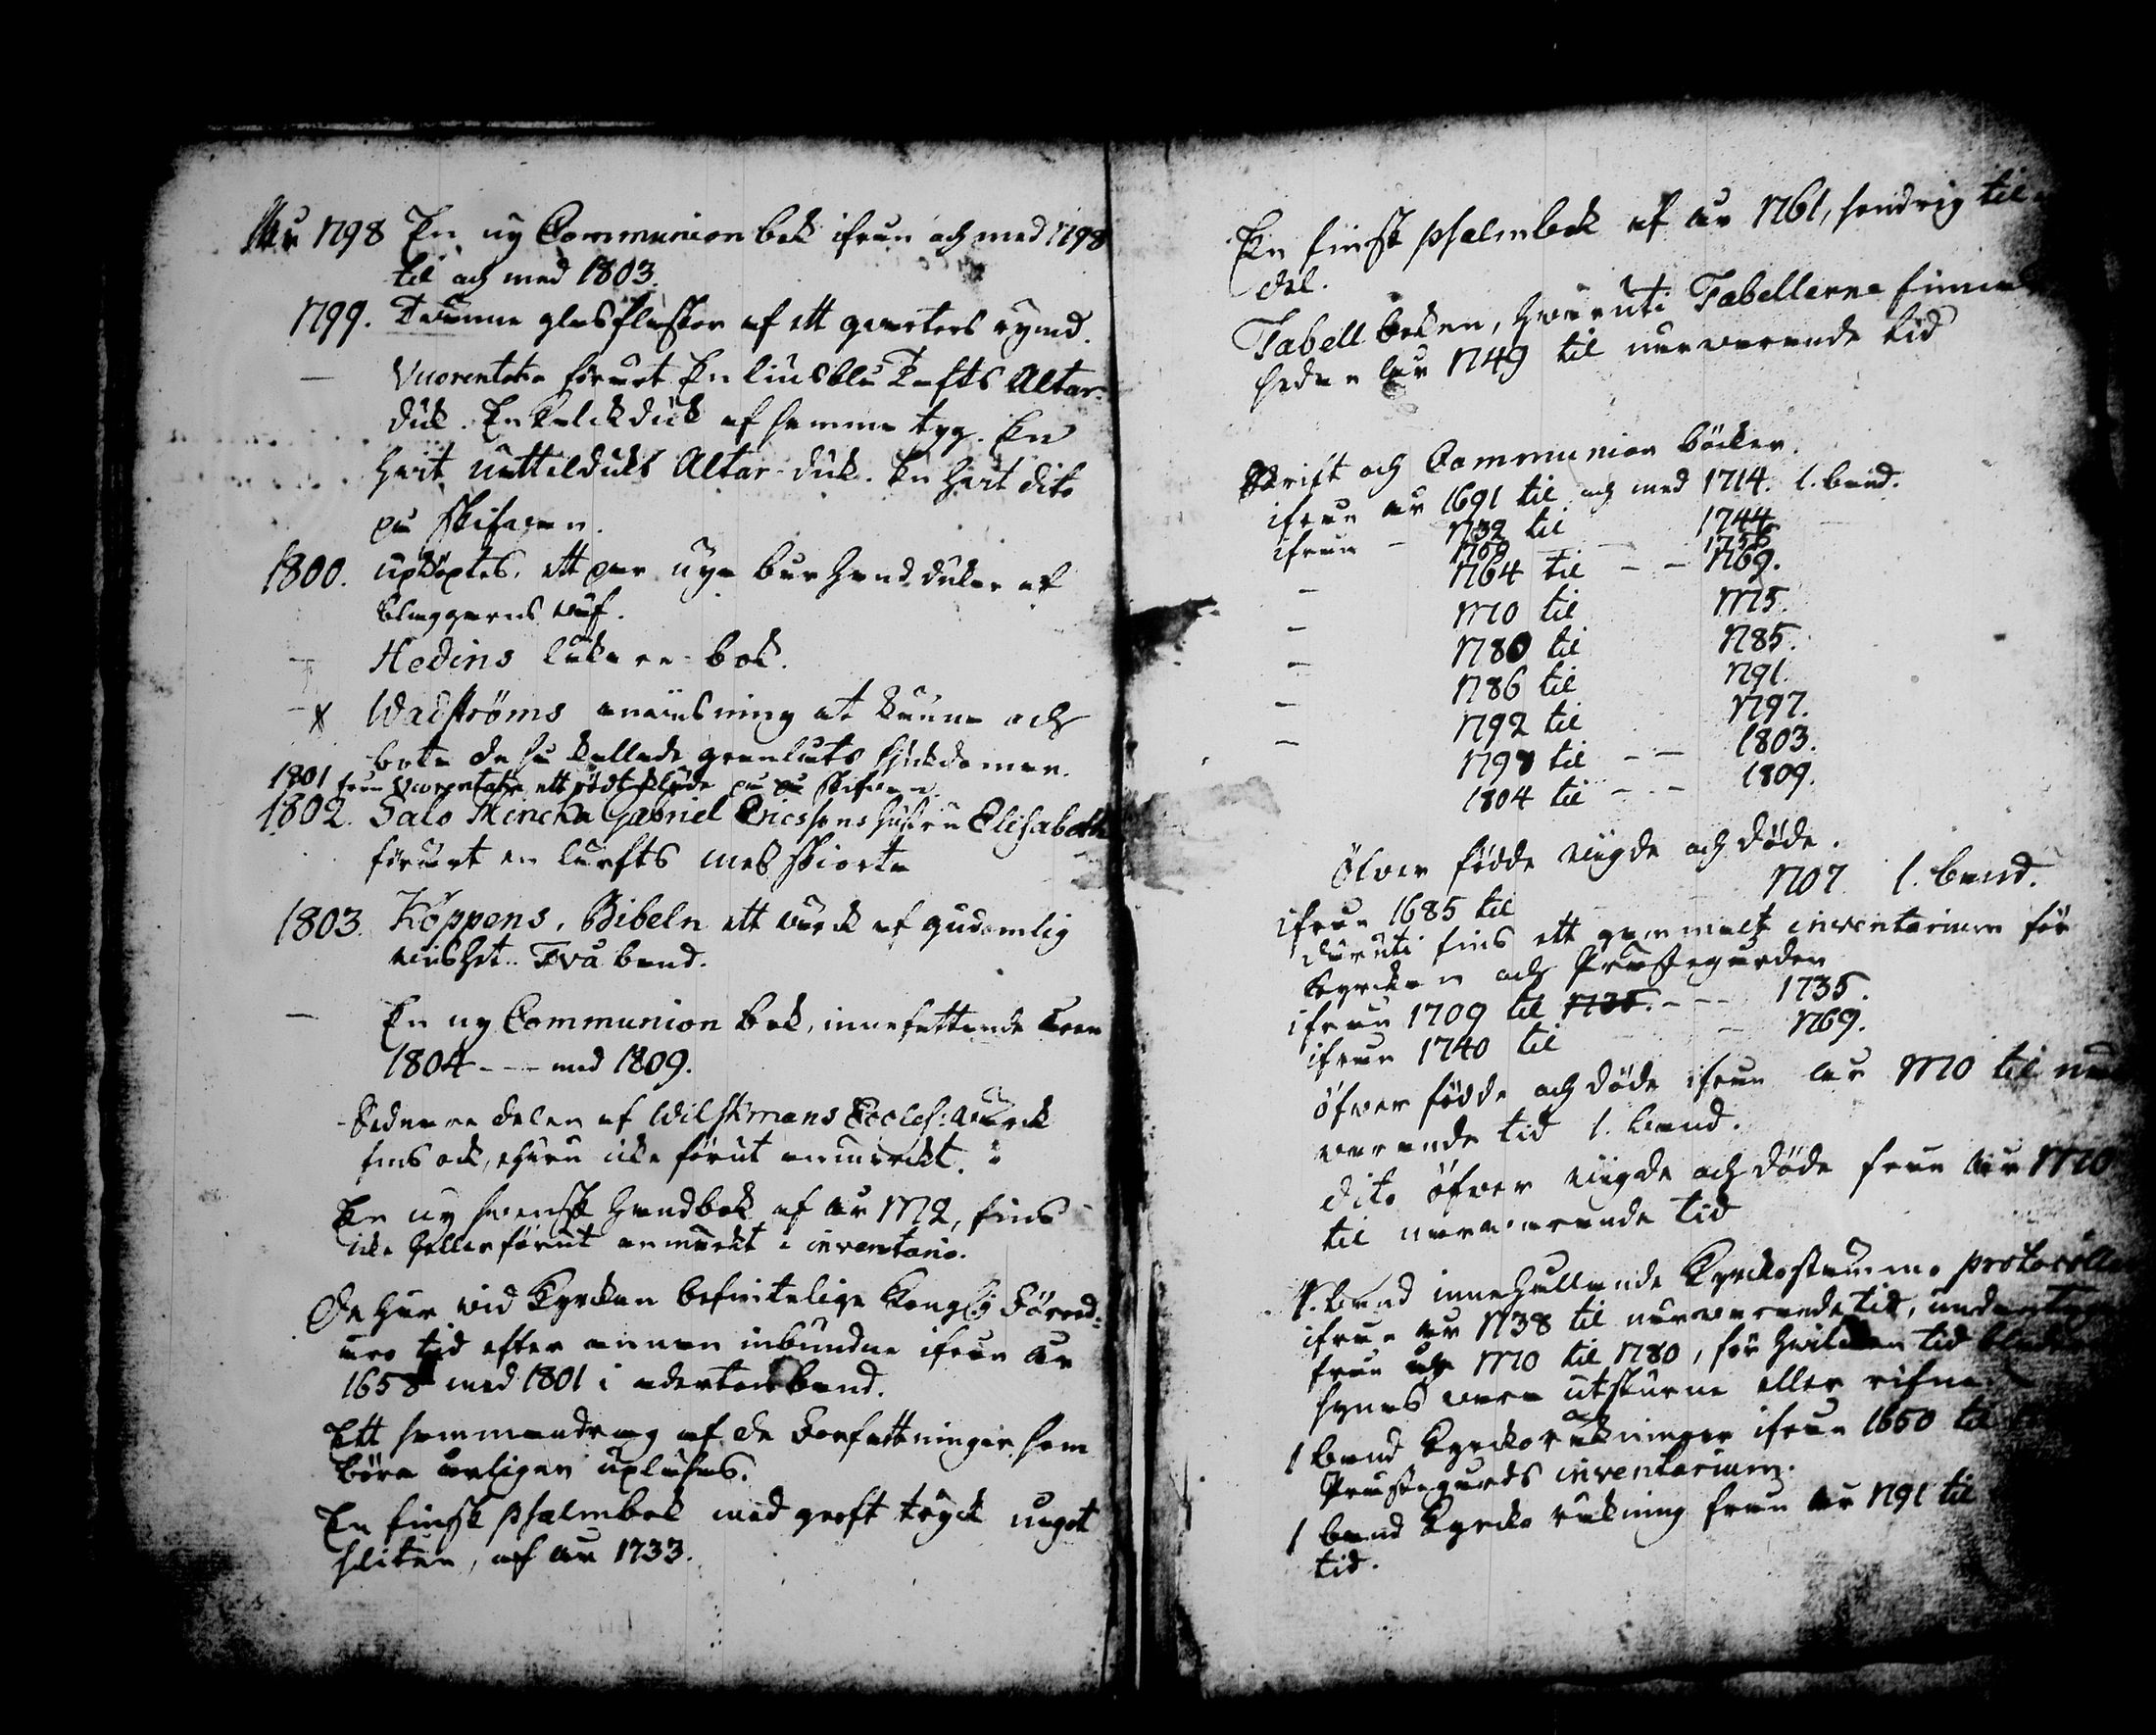 År 1798 En ny Communion bok ifrån och med 1798
til och med 1803.
1799. Tvänne glasflaskor af ett qvarters rymd.
— Vuorentaka förärt En liusblå Tafts Altar-
duk. En kalkduk af samma tyg. En
hvit nättelduks Altar-duk. En hvit dito
på skifvan.
1800. upköptes, ett par nya bår handdukar af
blaggarns väf.
— Hedins läkare-bok.
— Wadströms anvisning at känna och
bota de så kallade
1801 från Vuorentaka ett rödt kläde på skifvan.
1802. Salo Mincka Gabriel Ericssons hustru Elisabeth
förärt en lärfts mes skiorta
1803. Köppens, Bibeln ett värck af gudomlig
vishet. Två band.
— En ny Communion bok, innefattande åren
1804 - - - med 1809.
Sednare delen af Wilskmans Eccles: värck
fins ock, ehuru icke förut anmärckt.
En ny svensk handbok af år 1772, fins
icke heller förut anmärkt i inventario.
De här vid Kyrckan befintelige Kongl. Förord:
äro tid efter annan inbundne ifrån år
1658 med 1801 i aderton band.
Ett sammandrag af de Författningar, som
böra årligen upläsas.
En finsk psalmbok med groft tryck något
sliten, af år 1733.
En finsk psalmbok af år 1761, söndrig til
del.
Tabell boken, hvaruti Tabellerne finnas
sedan år 1749 til närvarande tid
Skrift och Communion böcker.
ifrån år 1691 til och med 1714. 1. band.
ifrån - 1732 til 1744
1750 - 1756
- 1764 til - - 1769.
- 1770 til 1775.
- 1780 til 1785.
- 1786 til 1791.
- 1792 til 1797.
1798 til - - 1803.
1804 til - - - 1809.
Öfver födde vigde och döde.
ifrån 1685 til 1707 1. band.
däruti fins ett gammalt inventarium för
kyrckan och Prästegården
ifrån 1709 til 1735. - - - 1735.
ifrån 1740 til - 1769.
öfver födde och döde ifrån år 1770 til när
varande tid 1. band.
dito öfver vigde och döde från år 1770
til närvarande tid
1. band innehållande Kyrckostämmo protocoller
ifrån år 1738 til närvarande tid, undantagne
från år 1770 til 1780, för hvilcken tid bladen
synas vara utskurne eller rifne.
1 band kyrckoräkningar ifrån 1650 til
Prästegårds inventarium.
1 band Kyrcko räkning från år 1791 til
tid.